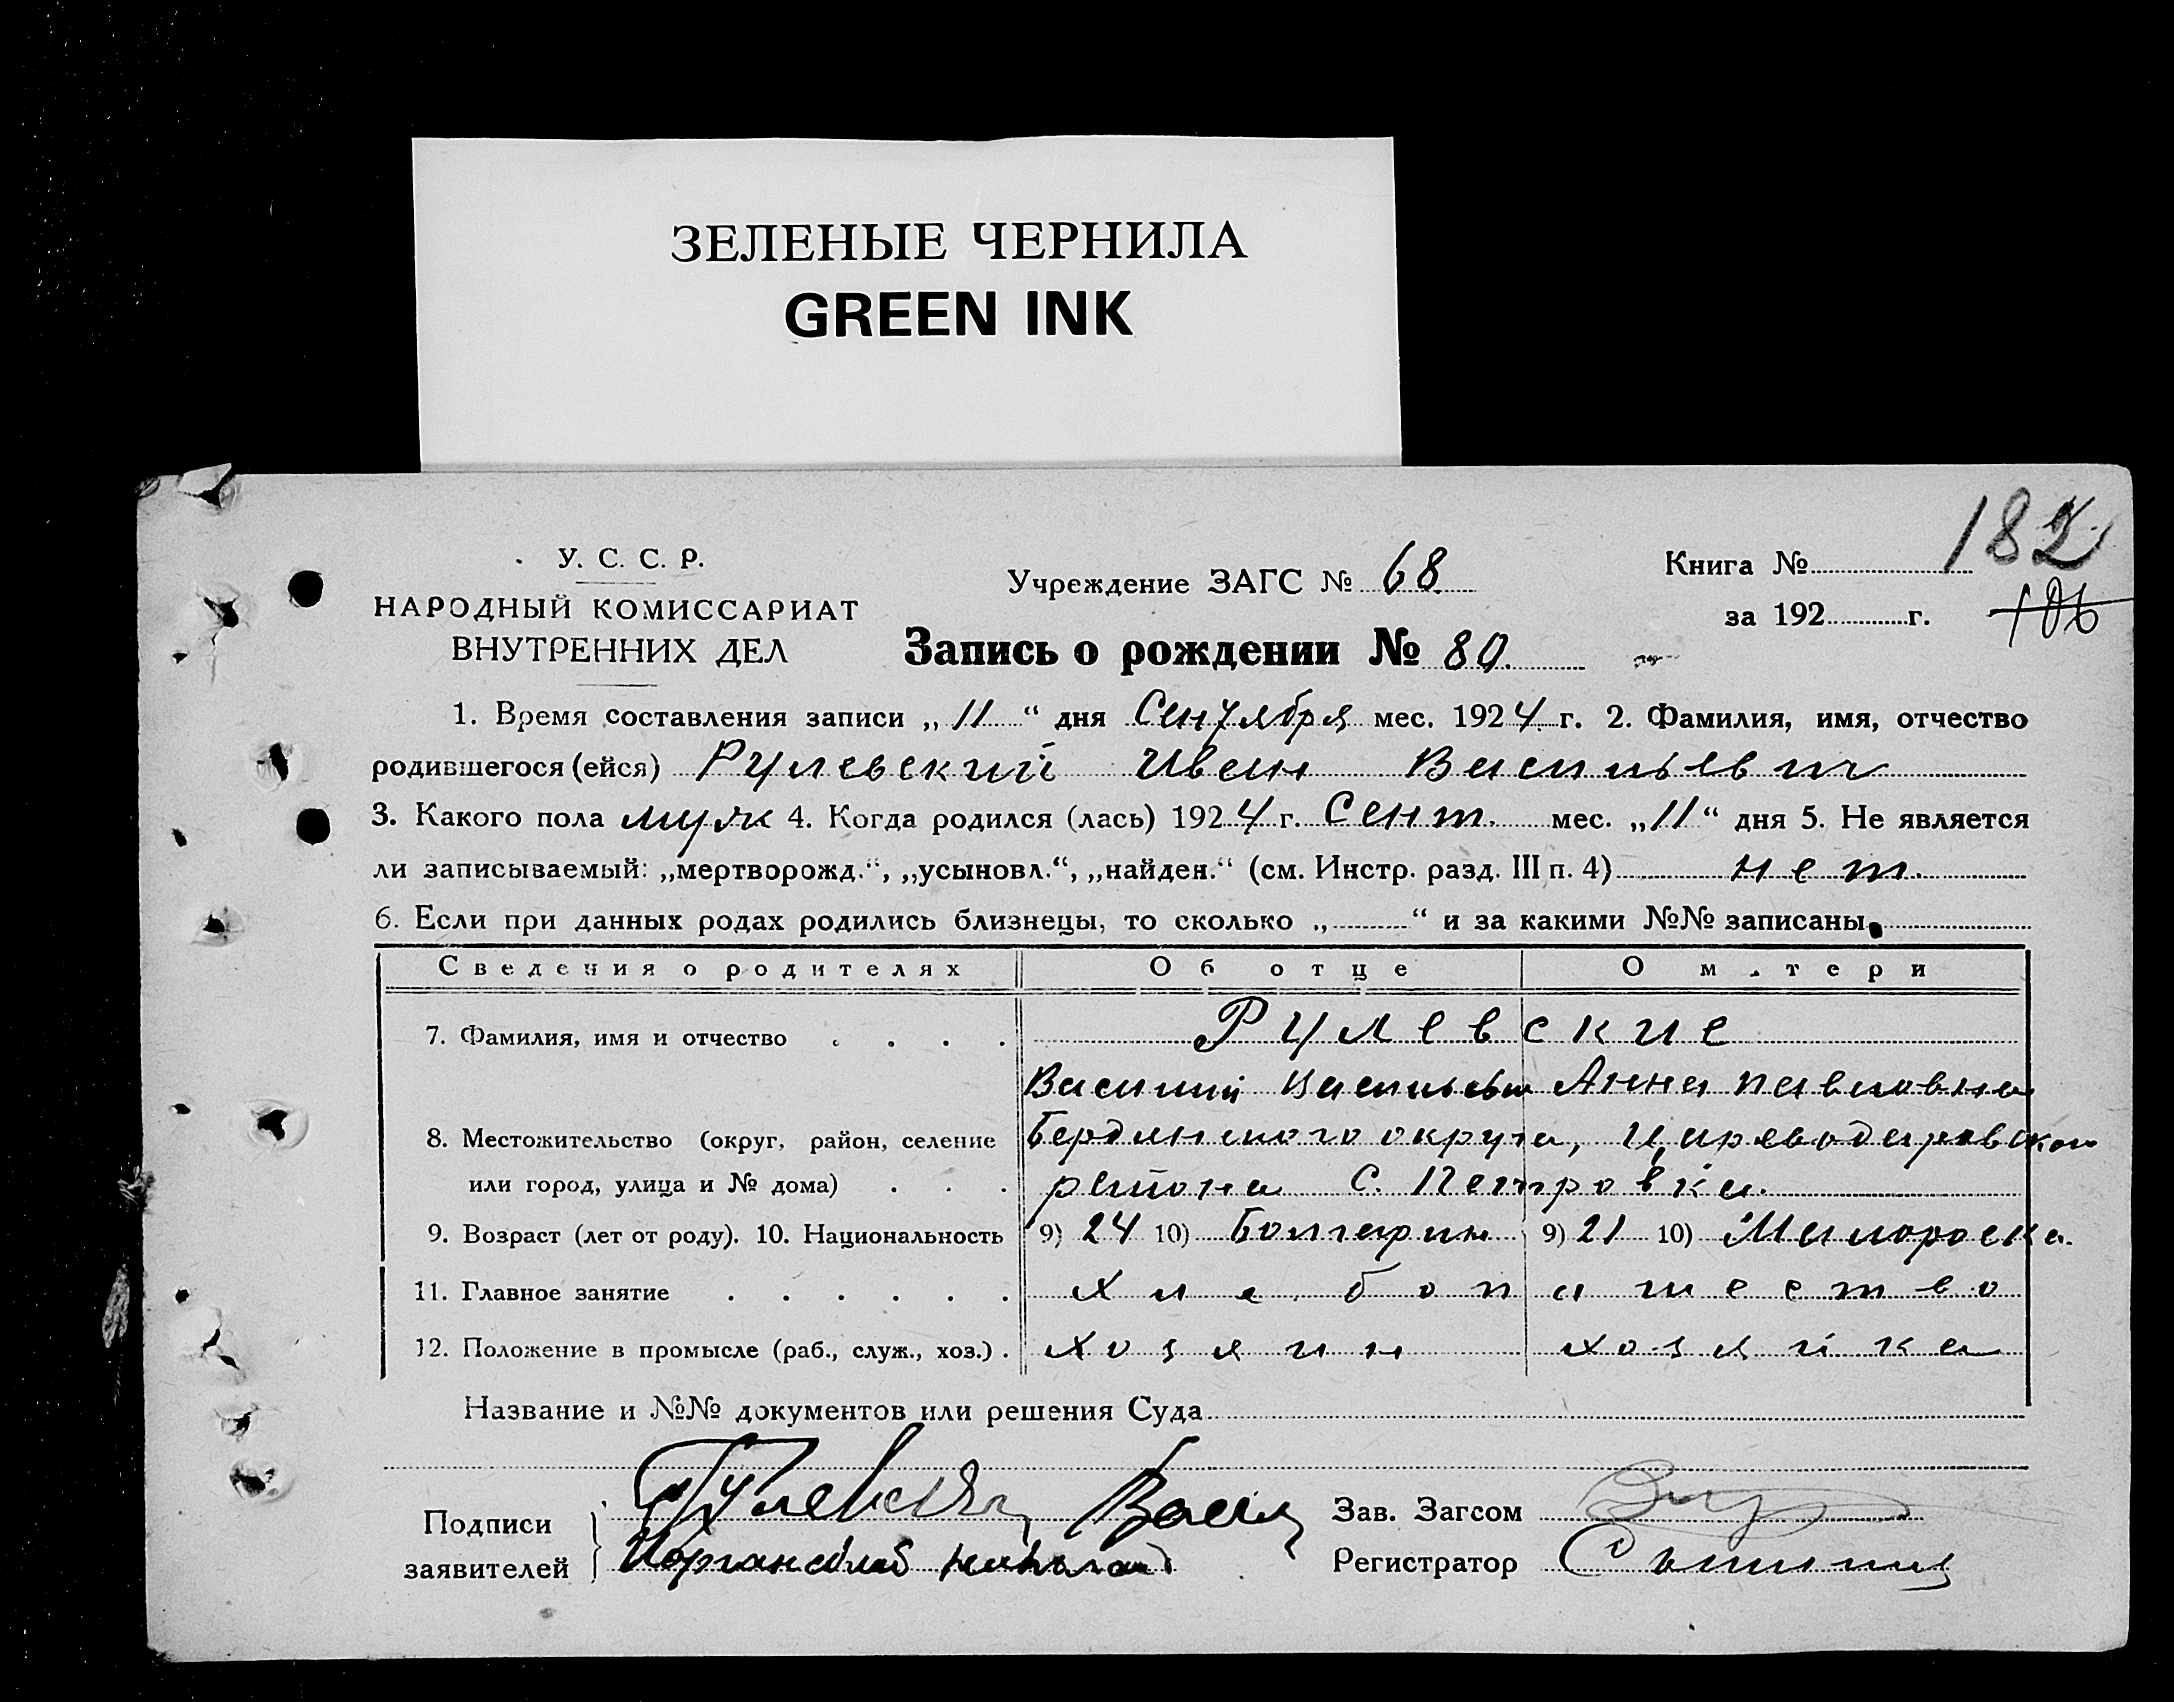 ЗЕЛЕНЫЕ ЧЕРНИЛА
GREEN INK
182
У. С. С. Р.
НАРОДНЫЙ КОМИССАРИАТ
ВНУТРЕННИХ ДЕЛ
Учреждение ЗАГС № 68.
Книга №
за 192 г. 106
Запись о рождении № 80.
1. Время составления записи „ 11 “ дня Сентября мес. 1924 г. 2. Фамилия, имя, отчество
родившегося (ейся) Рулевский Иван Васильевич
3. Какого пола муж 4. Когда родился (лась) 1924 г. Сент. мес. „11“ дня 5. Не является
ли записываемый: „мертворожд.“, „усыновл.“, „найден.“ (см. Инстр. разд. III п. 4) нет.
6. Если при данных родах родились близнецы, то сколько „ “ и за какими №№ записаны
Сведения о родителях Об отце О матери
7. Фамилия, имя и отчество . . . . Рулевские
Василий Васильев Анна Павловна
8. Местожительство (округ, район, селение Бердянского округа, Цареводаровского
или город, улица и № дома) . . . района С. Петровка.
9. Возраст (лет от роду). 10. Национальность 9) 24 10) Болгарин 9) 21 10) Малороска.
11. Главное занятие . . . . . . хлебопашество
12. Положение в промысле (раб., служ., хоз.) . хозяин хозяйка
Название и №№ документов или решения Суда
Подписи Рулевский Васил Зав. Загсом
заявителей Регистратор